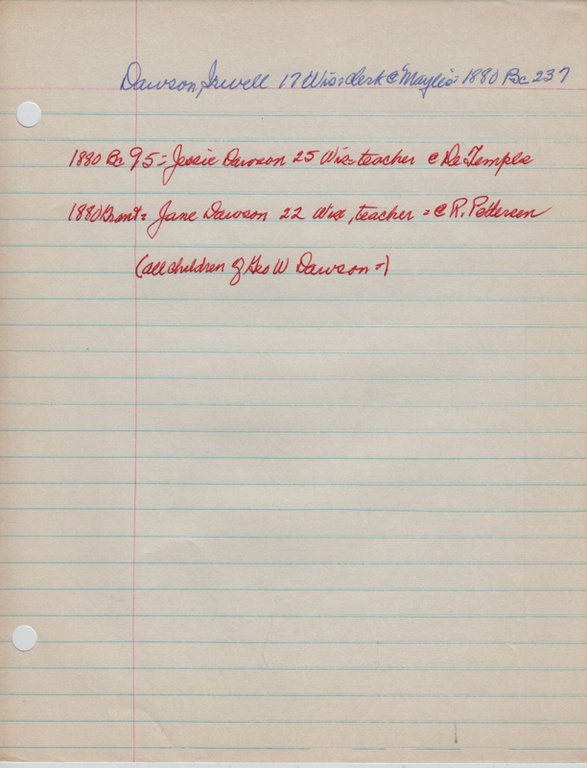 Dawson, Irwell 17 Wis = clerk @ Maylis = 1880 Bc 237
1880 Bc 95 = Jessie Dawson 25 Wis teacher @ De Temple
1880 Grant = Jane Dawson 22 Wis, teacher = @ R. Pettersen
(all children of Geo W Dawson =)